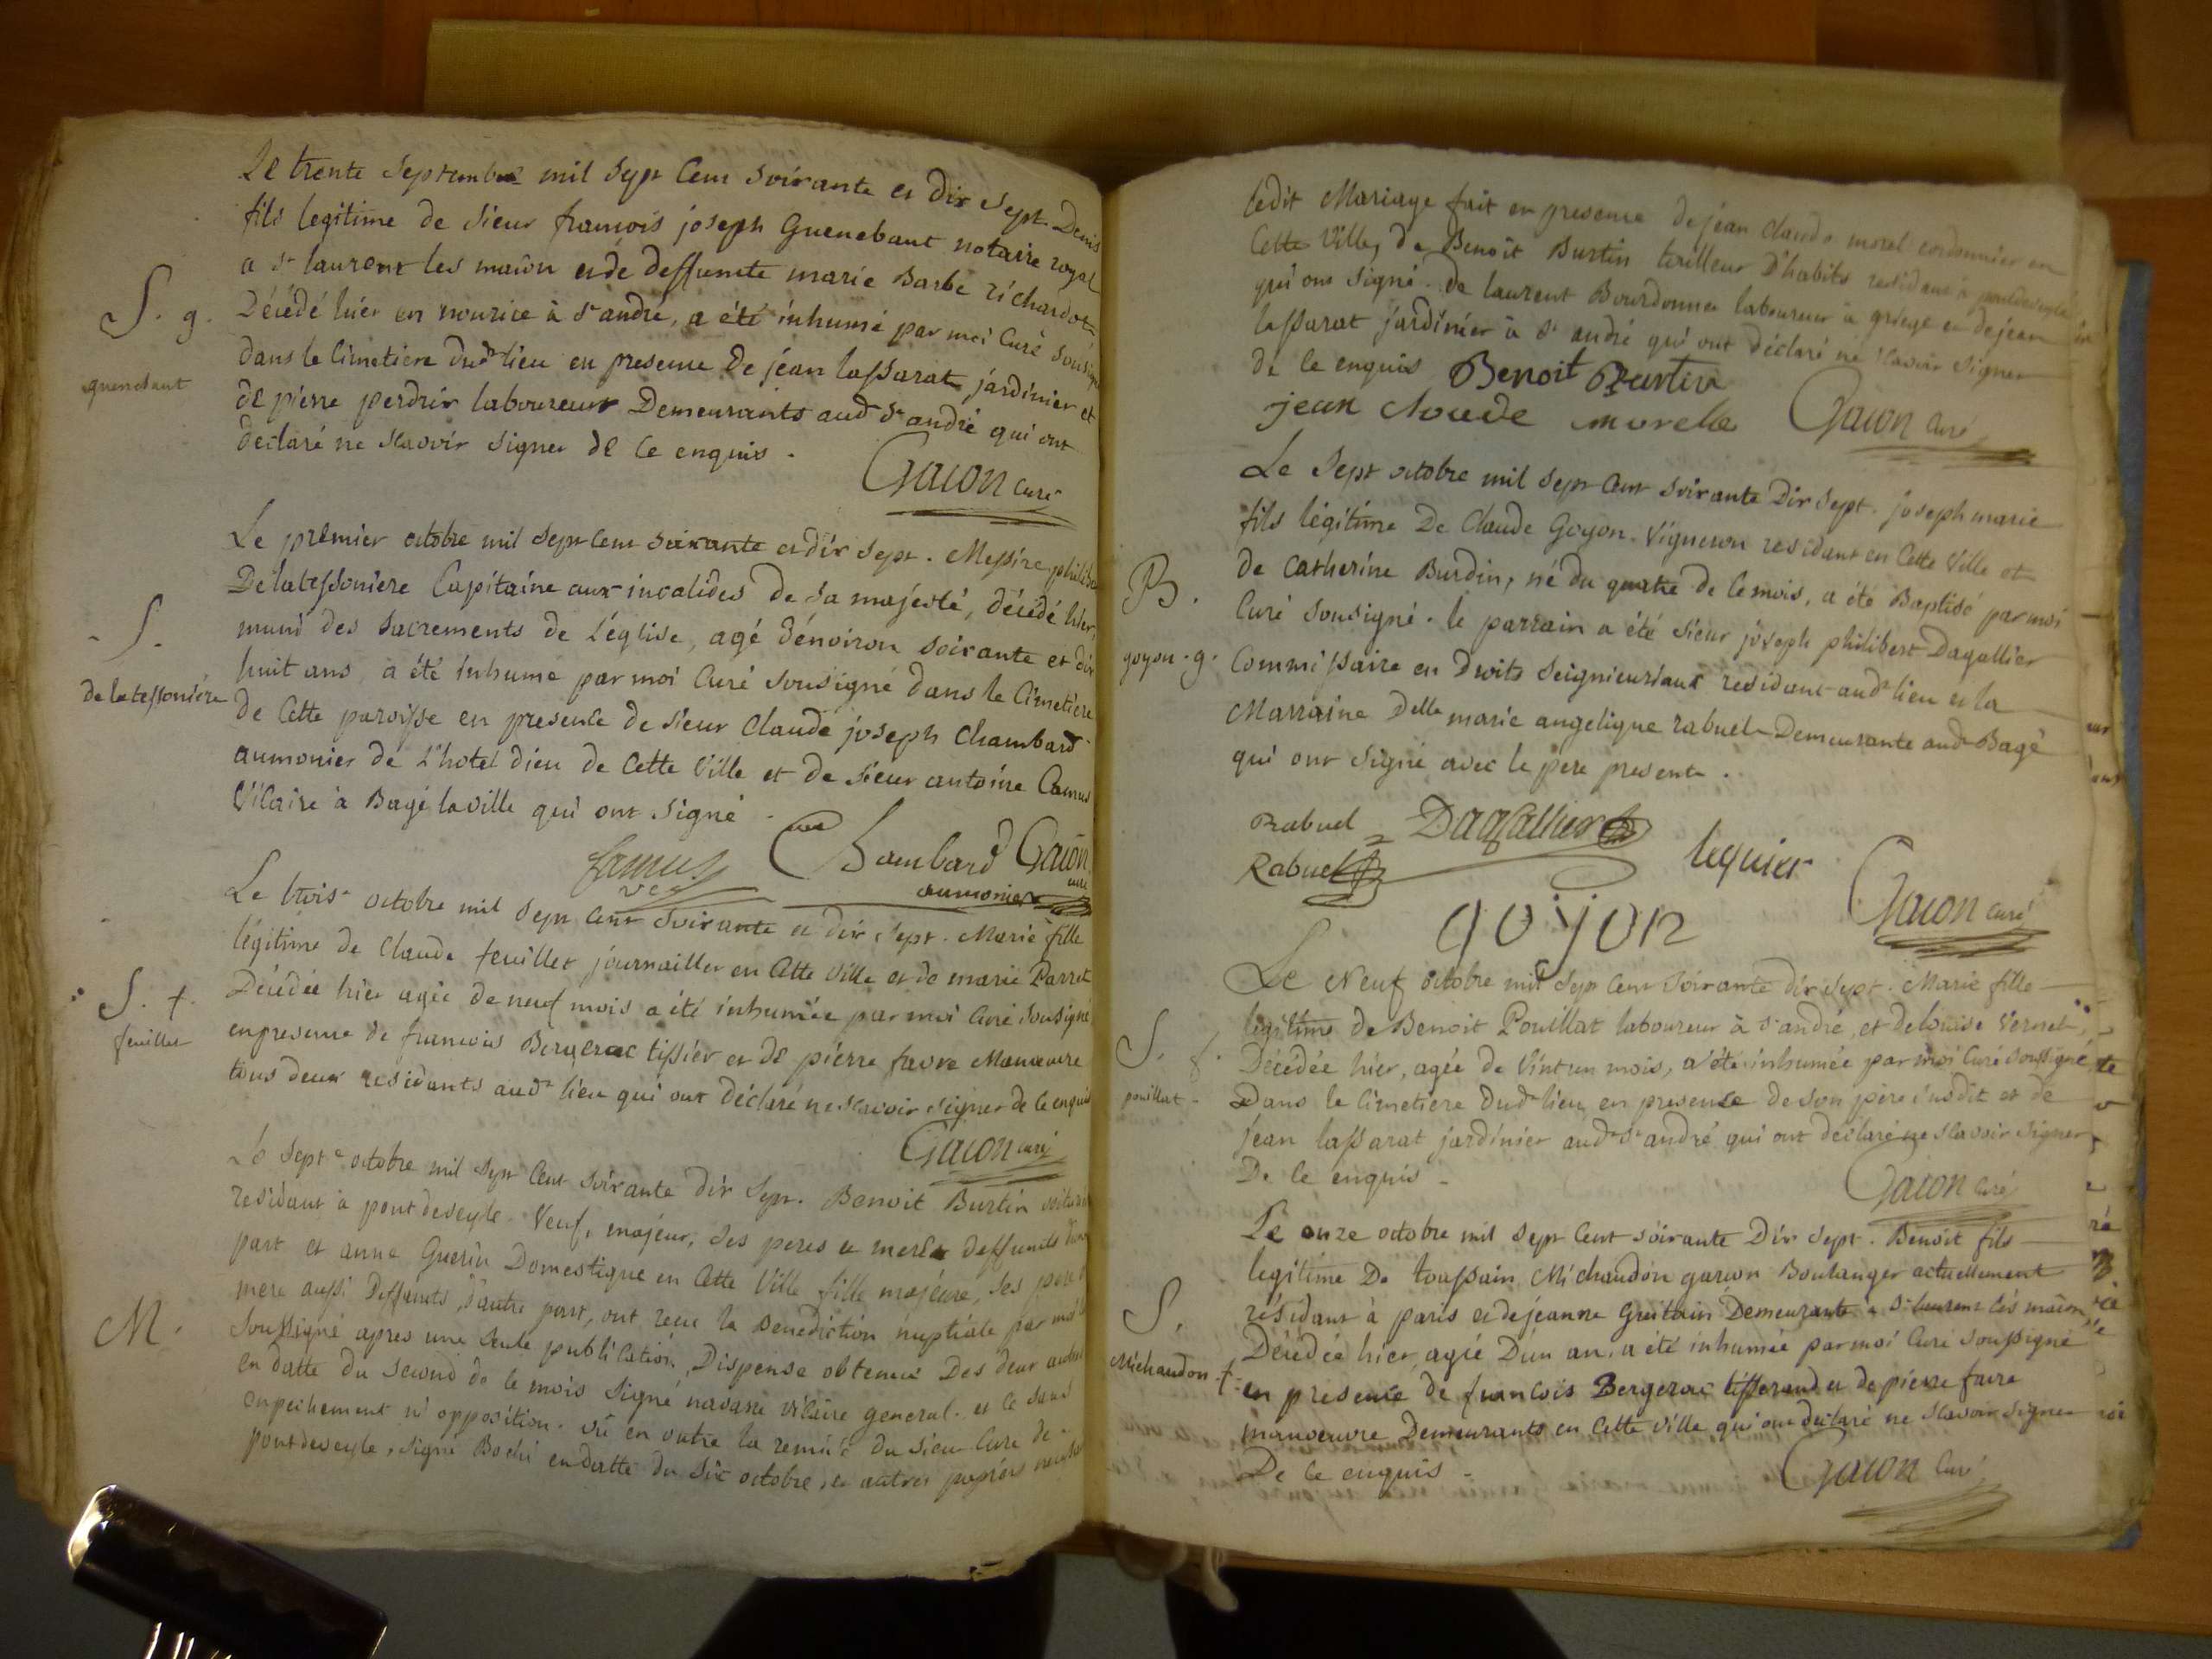 Le trente Septembre mil Sept Cent Soixante et dix Sept. Denis
fils legitime de Sieur françois joseph Guenebaut notaire royal
a St laurent les macon et de deffunte marie Barbe richardot
S. g. Décédé hier en nourice à St andré, a été inhumé par moi Curé Sousigné
guenebaut dans le Cimetiere dudt lieu en presence de jéan lassarat jardinier et
de piérre perdrix laboureur Demeurants audt St andré qui ont
declaré ne scavoir signer de ce enquis.
Gacon curé
Le premier octobre mil Sept Cent Soixante et dix Sept. Messire philibert
Delatessoniere Capitaine aux invalides de Sa majesté, décédé hier
S. muni des Sacrements de L'église, agé d'énviron soixante et dix
huit ans, a été inhumé par moi Curé Sousigné dans le Cimetiere
de latessoniére de Cette paroisse en presence de Sieur Claude joseph Chambard
aumonier de L'hotel dieu de Cette Ville et de Sieur antoine Camus
Vicaire à Bagé laville qui ont Signé.
Camus vic Chambard aumonier Gacon curé
Le trois octobre mil Sept Cent Soixante et dix Sept. Marie fille
légitime de Claude feuillet journaillier en Cette Ville et de marie Parret
S. f. Décédée hier agée de neuf mois a été inhumée par moi Curé Sousigné
feuillet en presence de francois Bergerac tissier et de piérre favre Manœuvre
tous deux residants audt lieu qui ont déclaré ne scavoir signer de ce enquis
Gacon curé
Le Sept octobre mil Sept Cent Soixante dix Sept. Benoit Burtin
residant à pontdeveyle. Veuf, majeur, Ses peres et meres deffunts d'une
part et anne Guerin Domestique en Cette Ville fille majéure, Ses pere et
mere aussi Deffunts, d'autre part, ont recu la Benediction nuptiale par moi
M. Soussigné apres une Seule publication, Dispense obtenue Des deux autres
en datte du Second de ce mois Signé navarre vicaire general. et ce sans
enpechement ni opposition. vû en outre la remise du sieur Curé de
pontdeveyle, signé Bochi en datte du Six octobre, et autres papiers
ledit Mariage fait en presence de jéan claude morel cordonnier en
Cette Ville, de Benoit Burtin tailleur D'habits residant à pontdeveyle
qui ont Signé. De laurent Bourdonner laboureur à griege et de jean
lassarat jardinier à St andré qui ont déclaré ne scavoir signer
de ce enquis Benoit Burtin
jean cloude morelle Gacon curé
Le Sept octobre mil Sept Cent Soixante Dix Sept. joseph marie
fils légitime De Claude Goyon. Vigneron residant en Cette Ville et
B. de Catherine Burdin, né du quatre de ce mois, a été Baptisé par moi
Curé Sousigné. le parrain a été Sieur joseph philibert Dagallier
goyon. g. Commissaire en Droits Seignieuriaux residant audt lieu et la
Marraine Delle marie angelique rabuel Demeurante audt Bagé
qui ont signé avec le pere present.
Rabuel Dagallier
Rabuel lequier
goyon Gacon curé
Le Neuf octobre mil Sept Cent Soixante dix Sept. Marie fille
legitime de Benoit Pouillat laboureur à St andré, et de louise Vernet,
S. f. Décédée hier, agée de Vint un mois, a été inhumée par moi Curé Soussigné
pouillat. Dans le Cimetiere Dudt lieu en presence de Son pére susdit et de
jean lassarat jardinier audt St andré qui ont déclaré ne scavoir signer
De ce enquis.
Gacon curé
Le onze octobre mil Sept Cent Soixante Dix Sept. Benoit fils
legitime De toussain Michaudon garcon Boulanger actuellement
S. résidant à paris et de jeanne Demeurante a St laurent les macon
Décédée hier, agée D'un an. a été inhumée par moi Curé Soussigné
Michaudon f. en presence de francois Bergerac tisserand et de pierre favre
manoeuvre Demeurants en Cette Ville qui ont déclaré ne Scavoir signer
De ce enquis.
Gacon Curé